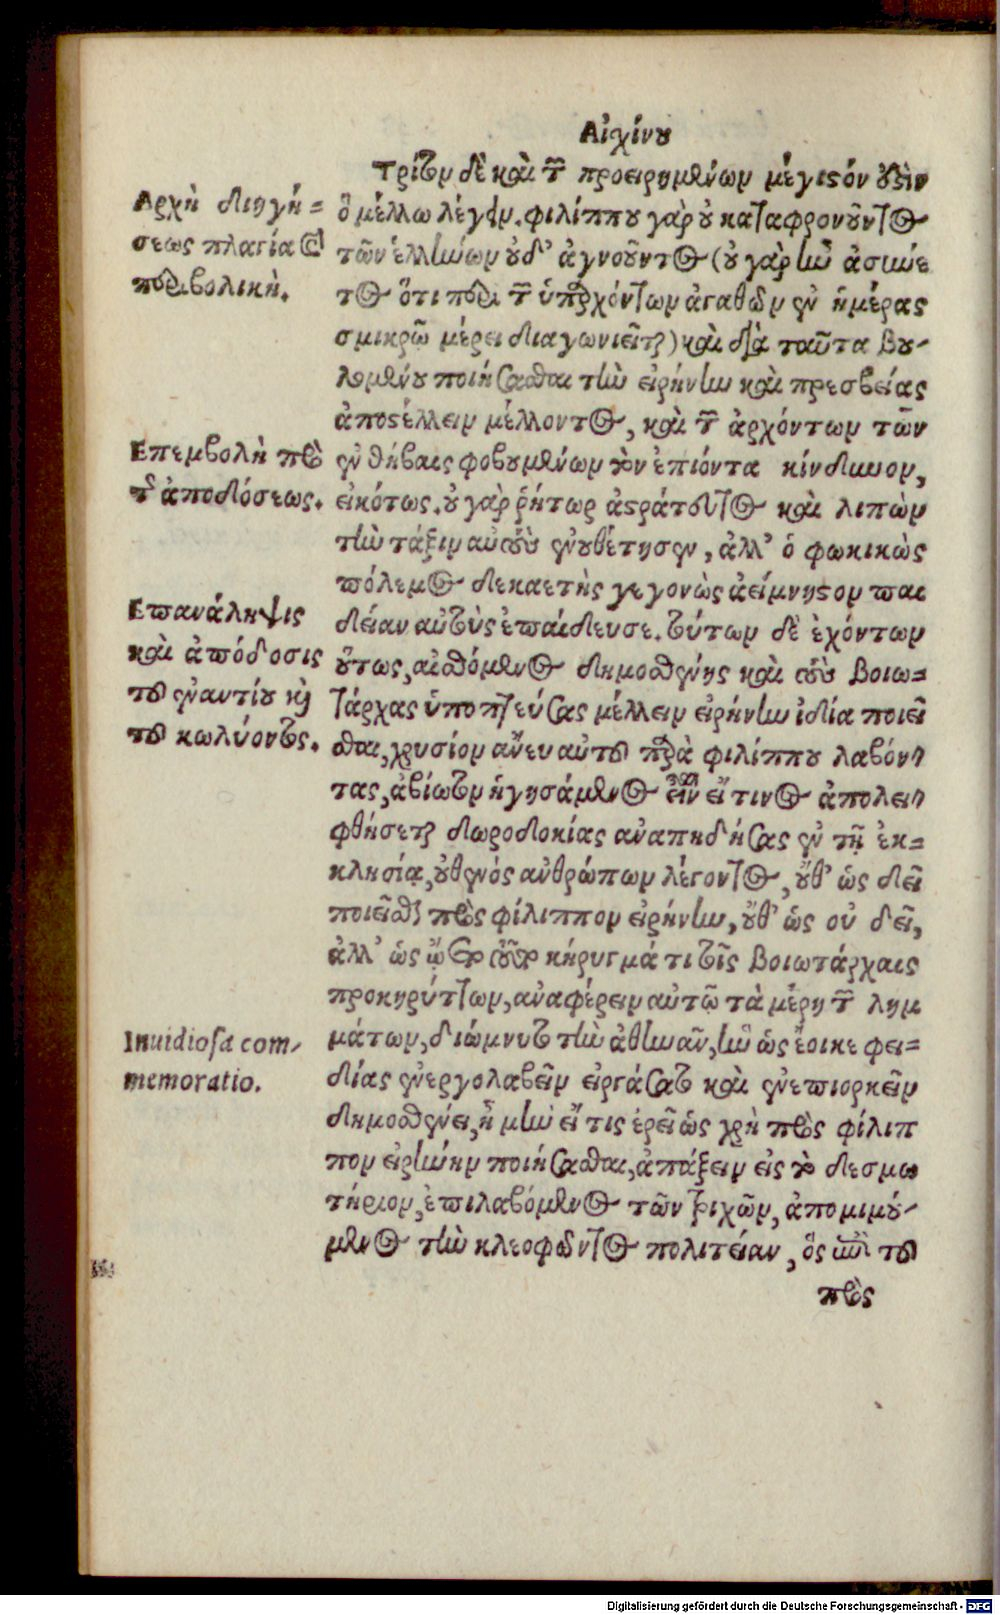 Αἰχίνου
Τρίτον δὲ καὶ τῶν προειρημένων μέγιστόν ἐστιν
ὃ μέλλω λέγειν. φιλίππου γὰρ οὐ καταφρονοῦντος
τῶν ἑλλήνων οὐδ' ἀγνοοῦντος (οὐ γὰρ ἦν ἀσύνε
τος ὅτι περὶ τῶν ὑπαρχόντων ἀγαθῶν ἐν ἡμέρας
σμικρῷ μέρει διαγωνιεῖται) καὶ διὰ ταῦτα βου-
λομένου ποιήσασθαι τὴν εἰρήνην καὶ πρεσβείας
ἀποστέλλειν μέλλοντος, καὶ τῶν ἀρχόντων τῶν
ἐν θήβαις φοβουμένων τὸν ἐπιόντα κίνδυνον,
εἰκότως. οὐ γὰρ ῥήτωρ ἀστράτευτος καὶ λιπὼν
τὴν τάξιν αὐτοὺς ἐνουθέτησεν, ἀλλ' ὁ φωκικὸς
πόλεμος δεκαετὴς γεγονὼς ἀείμνηστον παι
δείαν αὐτοὺς ἐπαίδευσε. τούτων δὲ ἐχόντων
οὕτως, αἰσθόμενος δημοσθένης καὶ τοὺς βοιω=
τάρχας ὑποπτεύσας μέλλειν εἰρήνην ἰδίᾳ ποιεῖ
σθαι, χρυσίον ἄνευ αὐτοῦ παρὰ φιλίππου λαβόν-
τας, ἀβίωτον ἡγησάμενος εἶναι εἴ τινος ἀπολει-
φθήσεται δωροδοκίας ἀναπηδήσας ἐν τῇ ἐκ=
κλησίᾳ, οὐθενὸς ἀνθρώπων λέγοντος, οὔθ' ὡς δεῖ
ποιεῖσθαι πρὸς φίλιππον εἰρήνην, οὔθ' ὡς οὐ δεῖ,
ἀλλ' ὡς ᾤετο τοῦτο κήρυγμά τι τοῖς βοιωτάρχαις
προκηρύττων, ἀναφέρειν αὐτῷ τὰ μέρη τῶν λημ
μάτων, διώμνυτο τὴν ἀθηνᾶν, ἣν ὡς ἔοικε φει=
δίας ἐνεργολαβεῖν εἰργάσατο καὶ ἐνεπιορκεῖν
δημοσθένει, ἦ μὴν εἴ τις ἐρεῖ ὡς χρὴ πρὸς φίλιπ
πον εἰρήνην ποιήσασθαι, ἀπάξειν εἰς τὸ δεσμω
τήριον, ἐπιλαβόμενος τῶν τριχῶν, ἀπομιμού-
μενος τὴν κλεοφῶντος πολιτείαν, ὃς ἐπὶ τοῦ
πρὸς
Ἀρχὴ διηγή=
σεως πλαγία καὶ
περιβολική.
Ἐπεμβολὴ πρὸ
τῆς ἀποδόσεως.
Ἐπανάληψις
καὶ ἀπόδοσις
τοῦ ἐναντίου καὶ
τοῦ κωλύοντος.
Inuidiosa com-
memoratio.
Digitalisierung gefördert durch die Deutsche Forschungsgemeinschaft - DFG